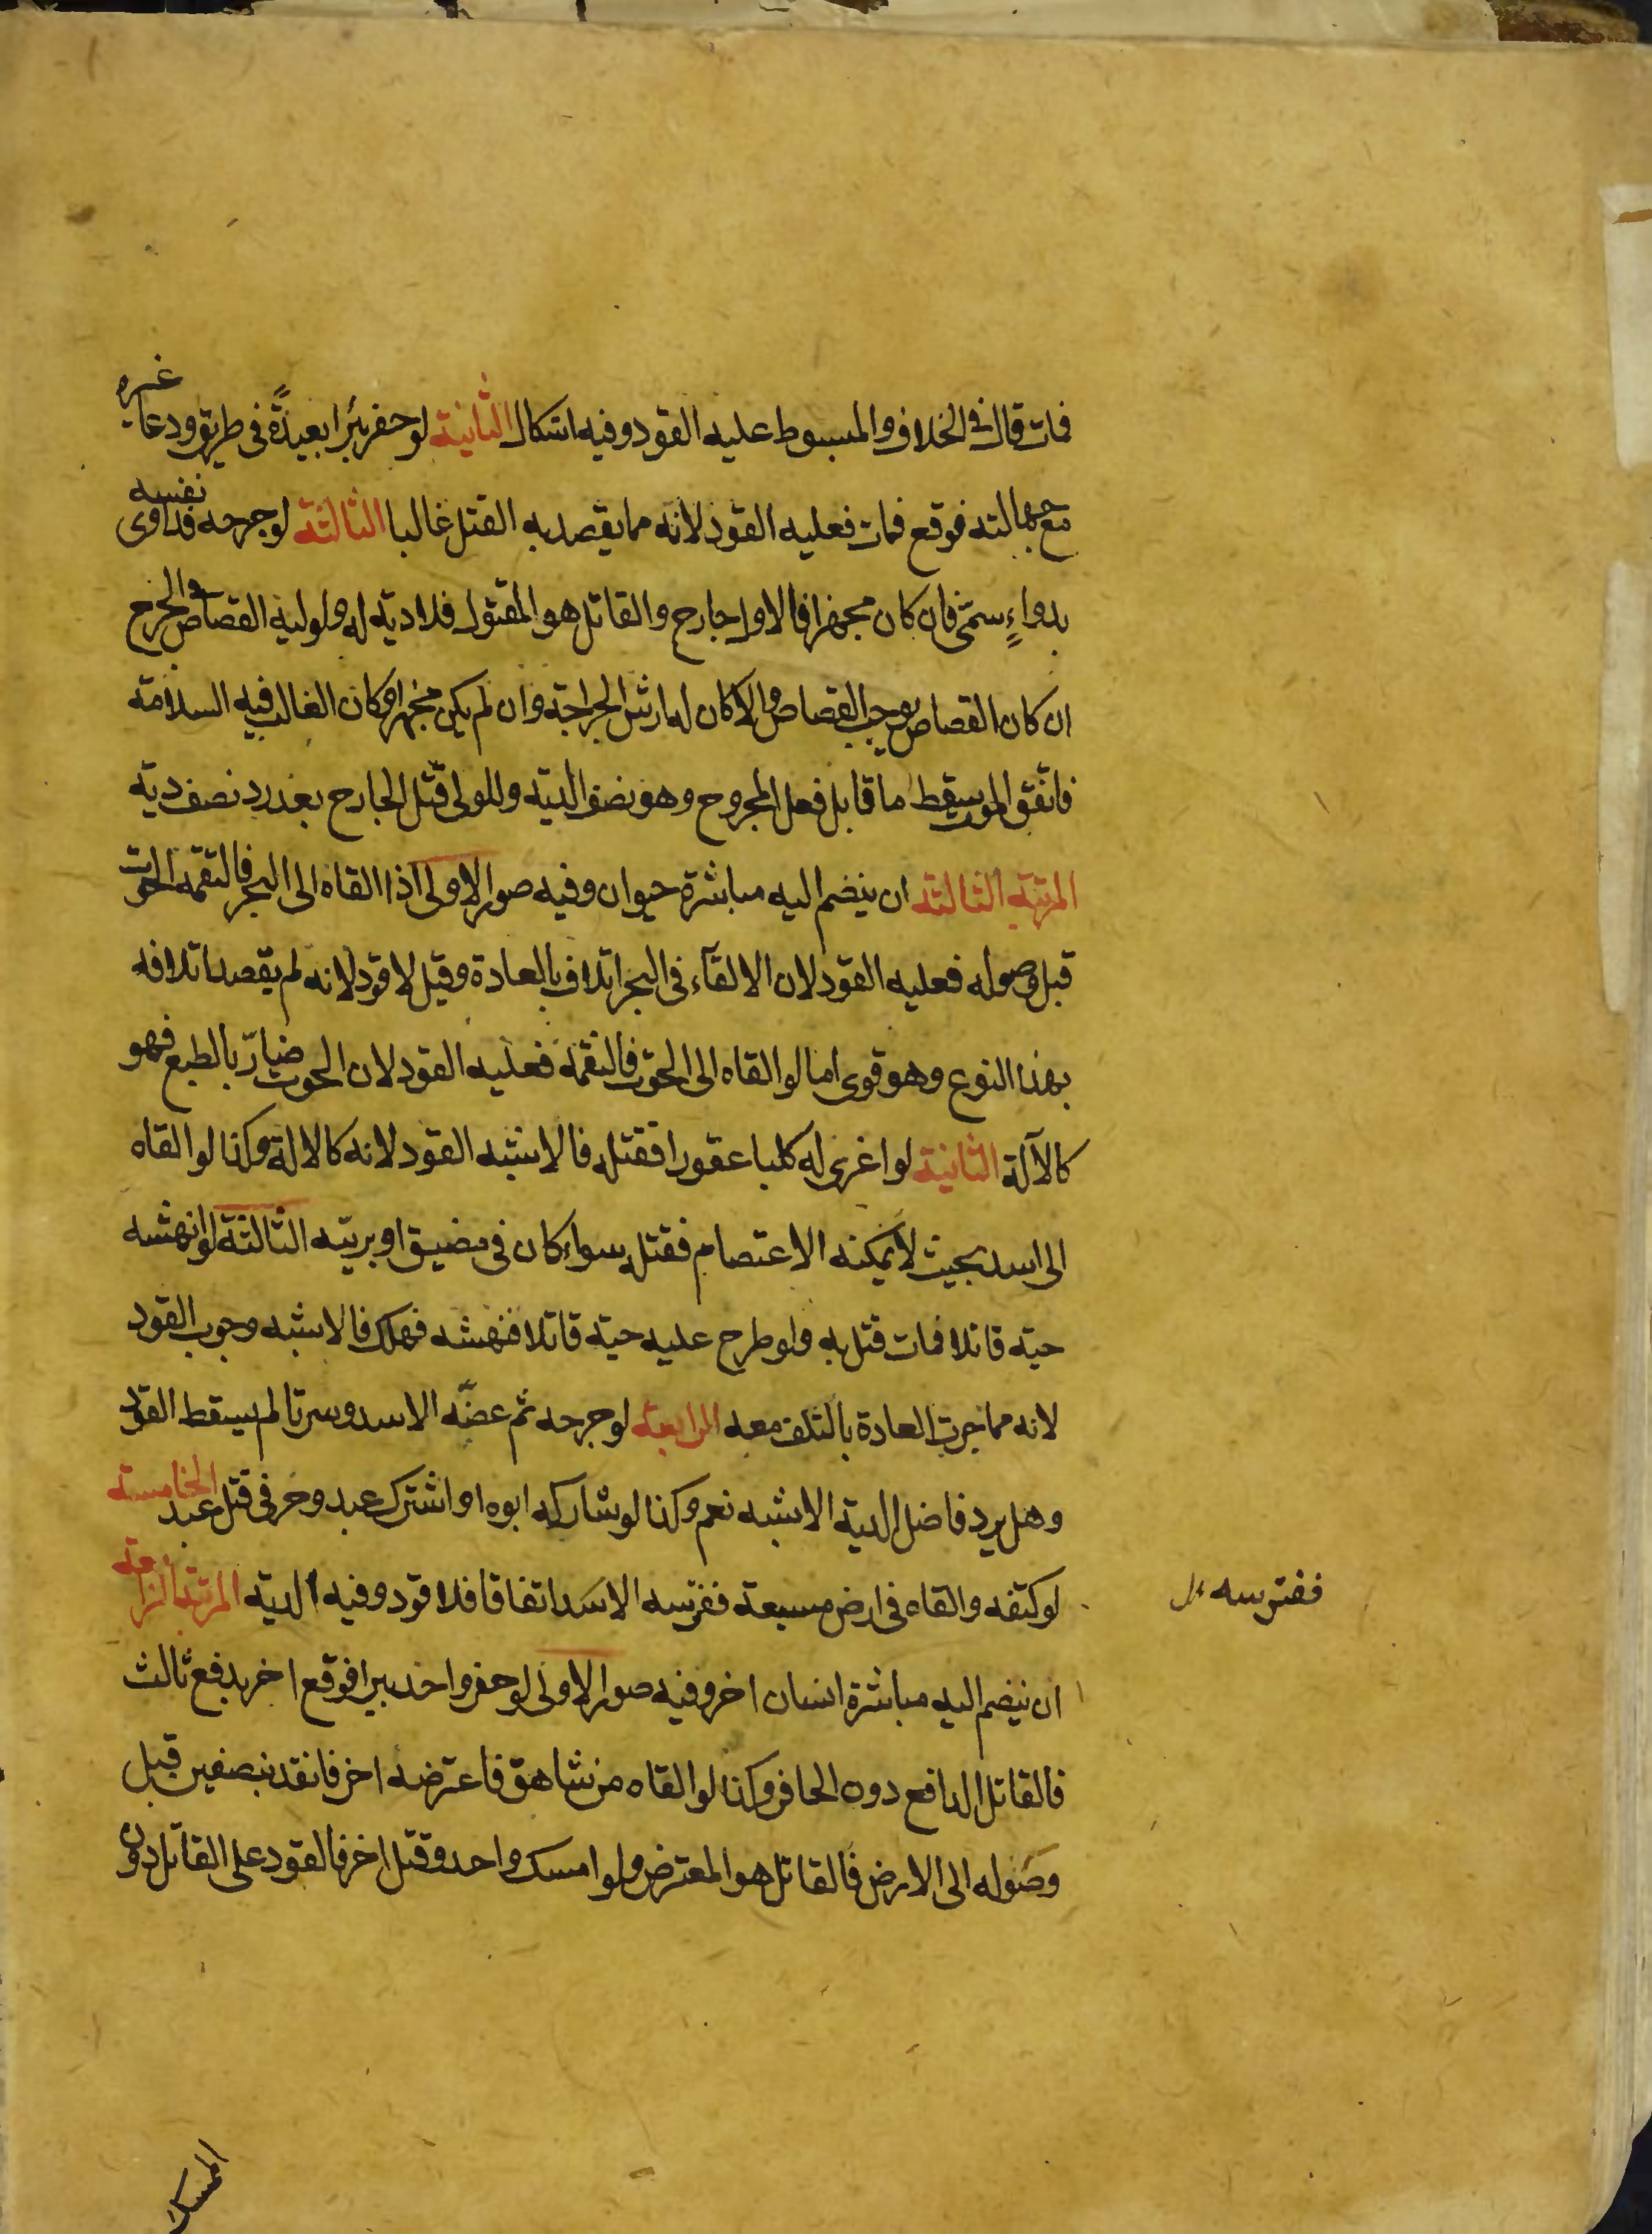 فمات قال في الخلاف والمبسوط عليه القود وفيه اشكال الثانية لو حفر بئرا بعيدة في طريق ودعا غيره
مع جهالته فوقع فمات فعليه القود لانه مما يقصد به القتل غالبا الثالثة لو جرحه فداوى نفسه
بدواءٍ سمّي فان كان مجهزا فالاول جارح والقاتل هو المقتول فلا دية له ولوليه القصاص في الجرح
ان كان القصاص يوجب القصاص والا كان له ارش الجراحة وان لم يكن مجهزا وكان الغالب فيه السلامة
فاتفق الموت سقط ما قابل فعل المجروح وهو نصف الدية وللولي قتل الجارح بعد رد نصف دية
المرتبة الثالثة ان ينضم اليه مباشرة حيوان وفيه صور الاولى اذا القاه الى البحر فالتقمه الحوت
قبل وصوله فعليه القود لان الالقآء في البحر اتلاف بالعادة وقيل لا قود لانه لم يقصد اتلافه
بهذا النوع وهو قوى اما لو القاه الى الحوت فالتقمه فعليه القود لان الحوت ضارّ بالطبع فهو
كالآلة الثانية لو اغرى له كلبا عقورا فقتله فالاشبه القود لانه كالالة وكذا لو القاه
الى اسد بحيث لا يمكنه الاعتصام فقتله سواء كان في مضيق او برية الثالثة لو انهشه
حية قاتلا فمات قتل به ولو طرح عليه حية قاتلا فنهشه فهلك فالاشبه وجوب القود
لانه مما جرت العادة بالتلف معه الرابعة لو جرحه ثم عضّه الاسد وسرتا لم يسقط القود
وهل يرد فاضل الدية الاشبه نعم وكذا لو شاركه ابوه او اشترك عبد وحر في قتل عبد الخامسة
لو كتفه والقاه في ارض مسبعة ففرتسه الاسد اتفاقا فلا قود وفيه الدية المرتبة الرابعة
ففترسه
ان ينضم اليه مباشرة انسان اخر وفيه صور الاولى لو حفر واحد بيرا فوقع اخر بدفع ثالث
فالقاتل الدافع دون الحافر وكذا لو القاه من شاهق فاعترضه اخر فانقد بنصفين قبل
وصوله الى الارض فالقاتل هو المعترض ولو امسك واحد وقتل اخر فالقود على القاتل دون
الممسك